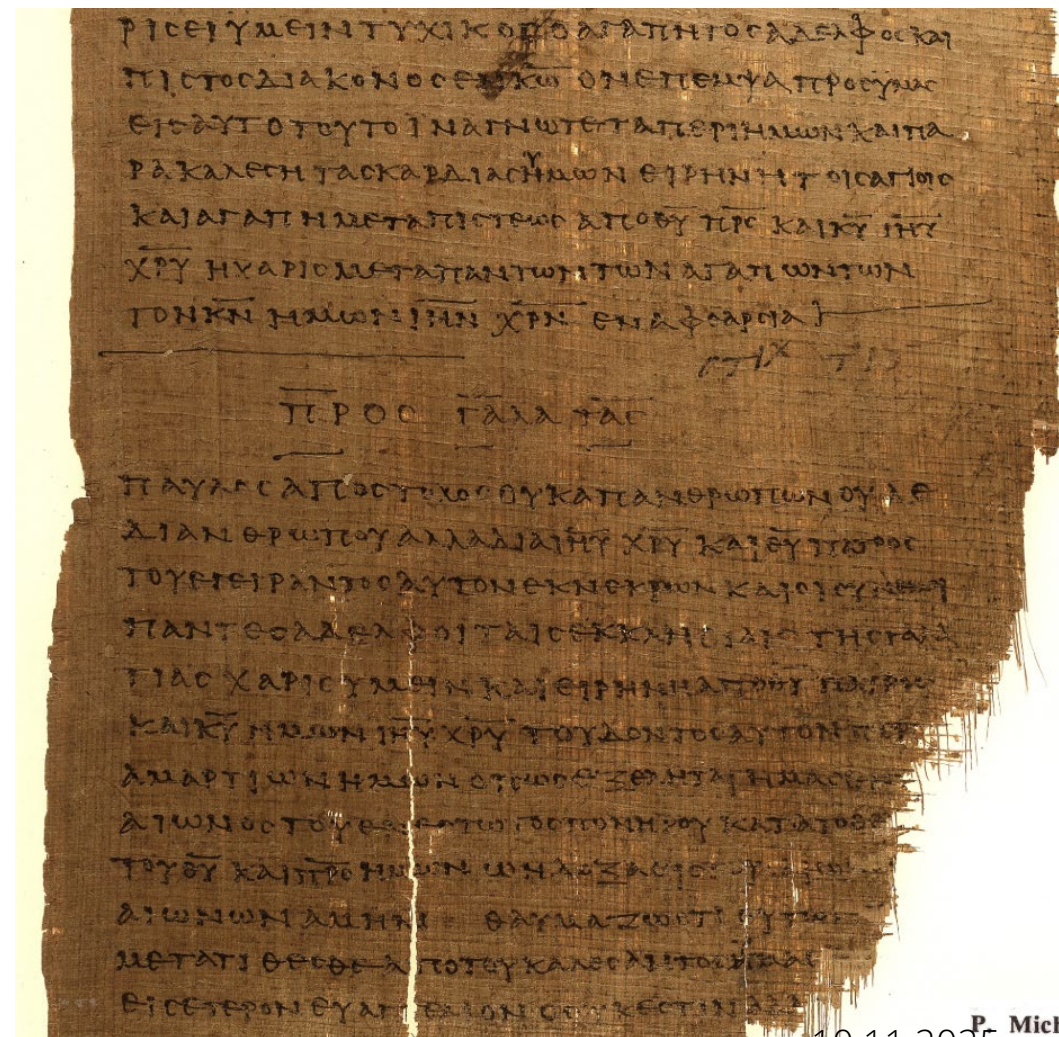 ΡΙCΕΙΥΜΕΙΝΤΥΧΙΚΟCΟΑΓΑΠΗΤΟCΑΔΕΛΦΟCΚΑΙ
ΠΙCΤΟCΔΙΑΚΟΝΟCΕΝΚ̅Ω̅ ΟΝΕΠΕΜΨΑΠΡΟCΥΜΑC
ΕΙCΑΥΤΟΤΟΥΤΟΙΝΑΓΝΩΤΕΤΑΠΕΡΙΗΜΩΝΚΑΙΠΑ
ΡΑΚΑΛΕCΗΤΑCΚΑΡΔΙΑCἩΥʼΜΩΝ ΕΙΡΗΝΗΤΟΙCΑΓΙΟΙC
ΚΑΙΑΓΑΠΗΜΕΤΑΠΙCΤΕΩC ΑΠΟΘ̅Υ̅ Π̅Ρ̅C̅ ΚΑΙΚ̅Υ̅ Ι̅Η̅Υ̅
Χ̅Ρ̅Υ̅ ΗΧΑΡΙCΜΕΤΑΠΑΝΤΩΝΤΩΝΑΓΑΠΩΝΤΩΝ
ΤΟΝΚ̅Ν̅ ΗΜΩΝΙ̅Η̅Ν̅ Χ̅Ρ̅Ν̅ ΕΝΑΦΘΑΡCΙΑ
CΤΙΧ
ΠΡΟC ΓΑΛΑΤΑC
ΠΑΥΛΟCΑΠΟCΤΟΛΟCΟΥΚΑΠΑΝΘΡΩΠΩΝΟΥΔΕ
ΔΙΑΝΘΡΩΠΟΥΑΛΛΑΔΙΑΙ̅Η̅Υ̅ Χ̅Ρ̅Υ̅ ΚΑΙΘ̅Υ̅ ΠΑΤΡΟC
ΤΟΥΕΓΕΙΡΑΝΤΟCΑΥΤΟΝΕΚΝΕΚΡΩΝΚΑΙΟΙCΥΝΕΜΟΙ
ΠΑΝΤΕCΑΔΕΛΦΟΙΤΑΙCΕΚΚΛΗCΙΑΙCΤΗCΓΑΛΑ
ΤΙΑC ΧΑΡΙCΥΜΕΙΝΚΑΙΕΙΡΗΝΗΑΠΟΘ̅Υ̅ ΠΑΤΡΟC
ΚΑΙΚ̅Υ̅ ΗΜΩΝΙ̅Η̅Υ̅ Χ̅Ρ̅Υ̅ ΤΟΥΔΟΝΤΟCΑΥΤΟΝΠΕΡ
ΑΜΑΡΤΙΩΝΗΜΩΝΟΠΩCΕΞΕΛΗΤΑΙΗΜΑC
ΑΙΩΝΟCΤΟΥΕΝΕCΤΩΤΟCΠΟΝΗΡΟΥΚΑΤΑΤΟΘΕ
ΤΟΥΘ̅Υ̅ ΚΑΙΠ̅Ρ̅Ο̅ΗΜΩΝ ΩΗΔΟΞΑ
ΑΙΩΝΩΝΑΜΗΝ ΘΑΥΜΑΖΩΟΤΙΟΥΤΩC
ΜΕΤΑΤΙΘΕCΘΕΑΠΟΤΟΥΚΑΛΕCΑΝΤΟCΥΜΑC
ΕΙCΕΤΕΡΟΝΕΥΑΓΓΕΛΙΟΝΟΟΥΚΕCΤΙΝΑΛΛ
P. Mich
10.11.2025